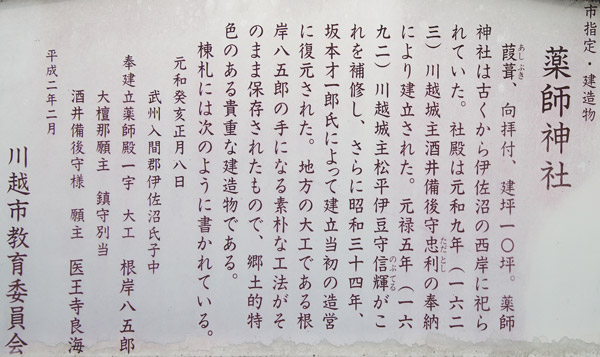 市指定・建造物
薬師神社
葭葺、向拝付、建坪一〇坪。薬師
あしぶき
神社は古くから伊佐沼の西岸に祀ら
れていた。社殿は元和九年（一六二
三）川越城主酒井備後守忠利の奉納
ただとし
により建立された。元禄五年（一六
九二）川越城主松平伊豆守信輝がこ
のぶてる
れを補修し、さらに昭和三十四年、
坂本才一郎氏によって建立当初の造営
に復元された。地方の大工である根
岸八五郎の手になる素朴な工法がそ
のまま保存されたもので、郷土的特
色のある貴重な建造物である。
棟札には次のように書かれている。
元和癸亥正月八日
武州入間郡伊佐沼氏子中
奉建立薬師殿一宇　大工　根岸八五郎
大檀那願主　鎮守別当
酒井備後守様　願主　医王寺良海
平成二年二月
川越市教育委員会